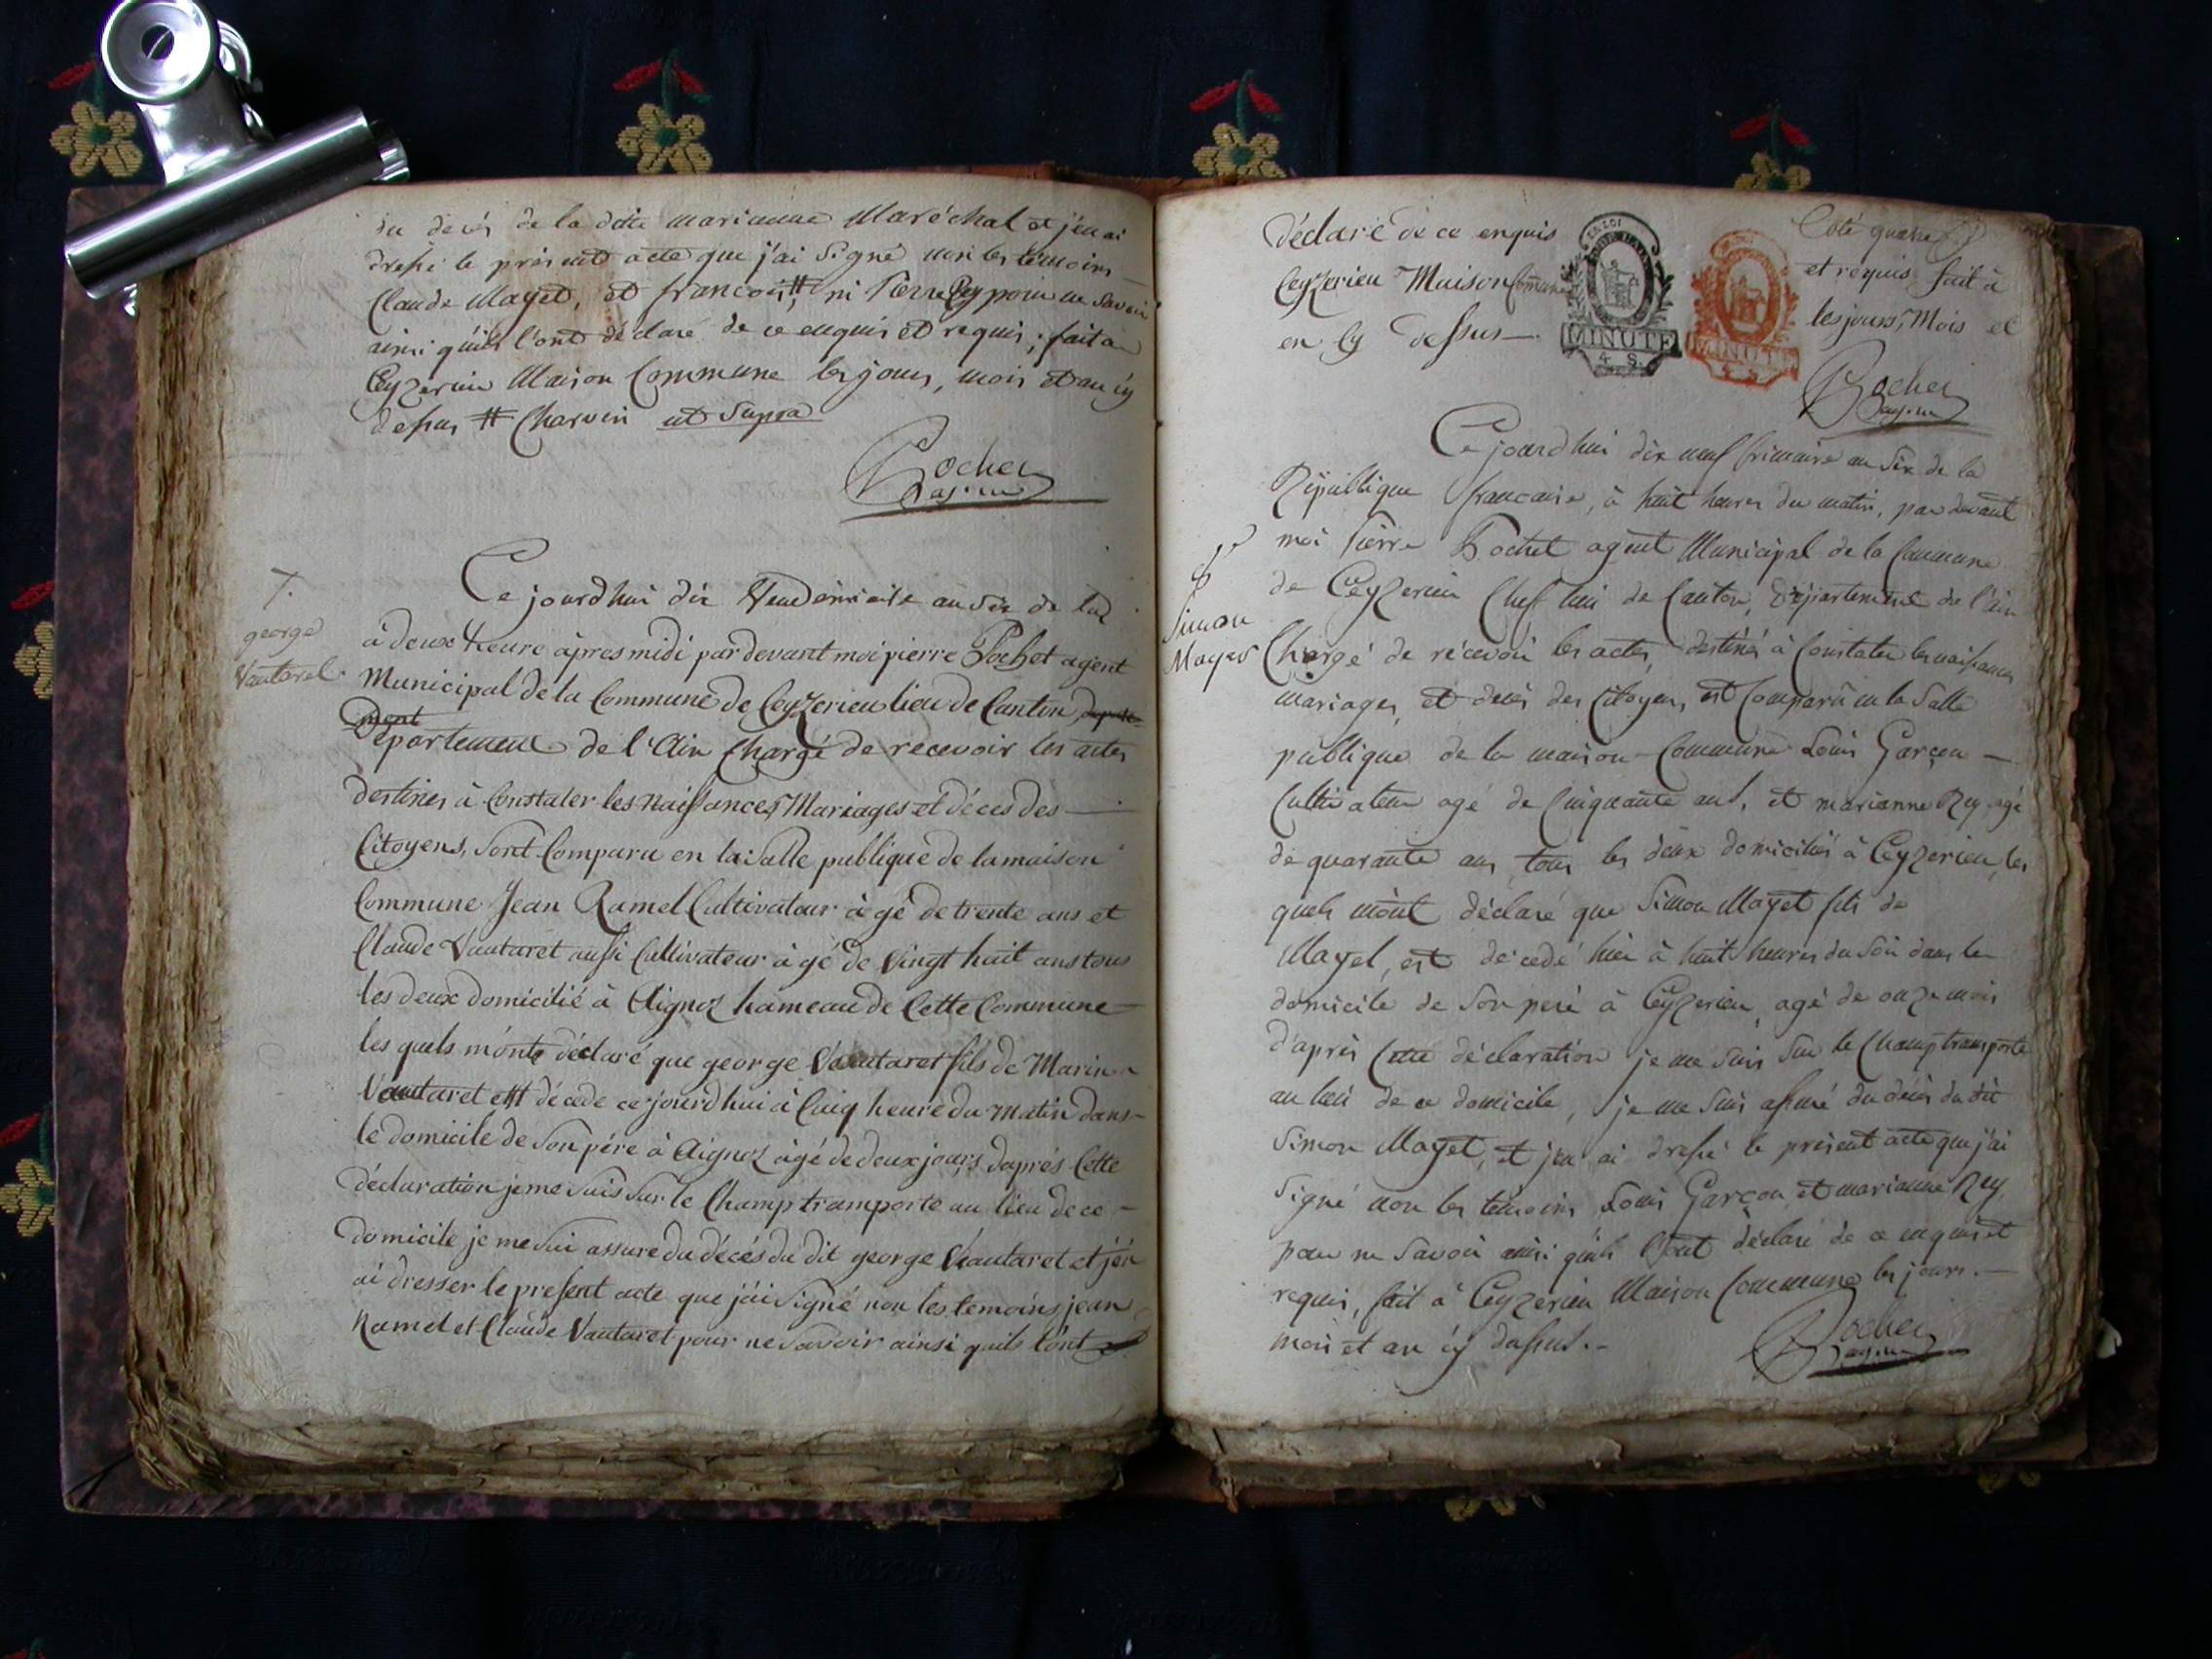 du decés de la ditte marianne Maréchal et j'en ai
dressé le présent acte que j'ai signé non les témoins
Claude Mayet, et francois # ni Pierre Rey pour ne Savoir
ainsi qu'ils l'ont déclaré de ce enquis et requis; fait à
Ceyzerieu Maison Commune les jours, mois et an cy
dessus # Charvin ut Supra
Pochet
agent
7.
george
Vautaret
Ce jourd'hui dix Vendémiaire an Six de la
à deux heure àpres midi pardevant moi pierre Pochet agent
Municipal de la Commune de Ceyzerieu lieu de Canton
Département de l'Ain Chargé de recevoir les actes
destinés à Constater les naissances Mariages et décès des
Citoyens, sont Comparu en la Salle publique de la maison
Commune Jean Ramel Cultivateur àgé de trente ans et
Claude Vautaret aussi Cultivateur àgé de Vingt huit ans tous
les deux domicilié à Aignoz hameau de Cette Commune
les quels m'ònts déclaré que george Vautaret fils de Marin
Vautaret est décede ce jourd'hui à Cinq heure du matin dans
le domicile de Son père à Aignoz àgé de deux jours daprés Cette
déclaration je me Suis Sur le Champ transporte au lieu de ce
domicile je me Sui assure du décés du dit george Vautaret et j'én
ai dresser le present acte que j'ai Signé non les temoins jean
Ramel et Claude Vautaret pour ne Savoir ainsi quils l'ònt
déclaré de ce enquis
Coté quatre
et requis fait à
Ceyzerieu Maison Commune
les jours, Mois et
en cy dessus
LA LOI
MINUTE
4 S.
MINUTE
4 S.
Pochet
agent
Ce jourd'hui dix neuf frimaire an Six de la
République francaise, à huit heures du matin, par devant
moi Pierre Pochet agent Municipal de la Commune
de Ceyzerieu Chef lieu de Canton, Département de l'ain
8
Simon
Mayet
Chargé de récevoir les actes, destinés à Constater les naissances
mariages, et decés des Citoyens, est Comparû en la Salle
publique de la maison Commune Louis Garçon
Cultivateur agé de Cinquante ans, et marianne Rey agé
de quarante ans tous les deux domiciliés à Ceyzerieu, les
quels mònt déclaré que Simon Mayet fils de
Mayet, est décedé hier à huit heures du Soir dans le
domicile de Son peré à Ceyzerieu, agé de onze mois
d'après Cette déclaration je me Suis Sur le Champ transporté
au lieu de ce domicile, je me Suis assuré du décés du dit
Simon Mayet, et j'en ai dressé le présent acte que j'ai
Signé non les témoins Louis Garçon et marianne Rey
pour ne Savoir ainsi qu'ils l'ont déclaré de ce enquis et
requis, fait à Ceyzerieu Maison Commune les jours
mois et an cy dessus.
Pochet
agent